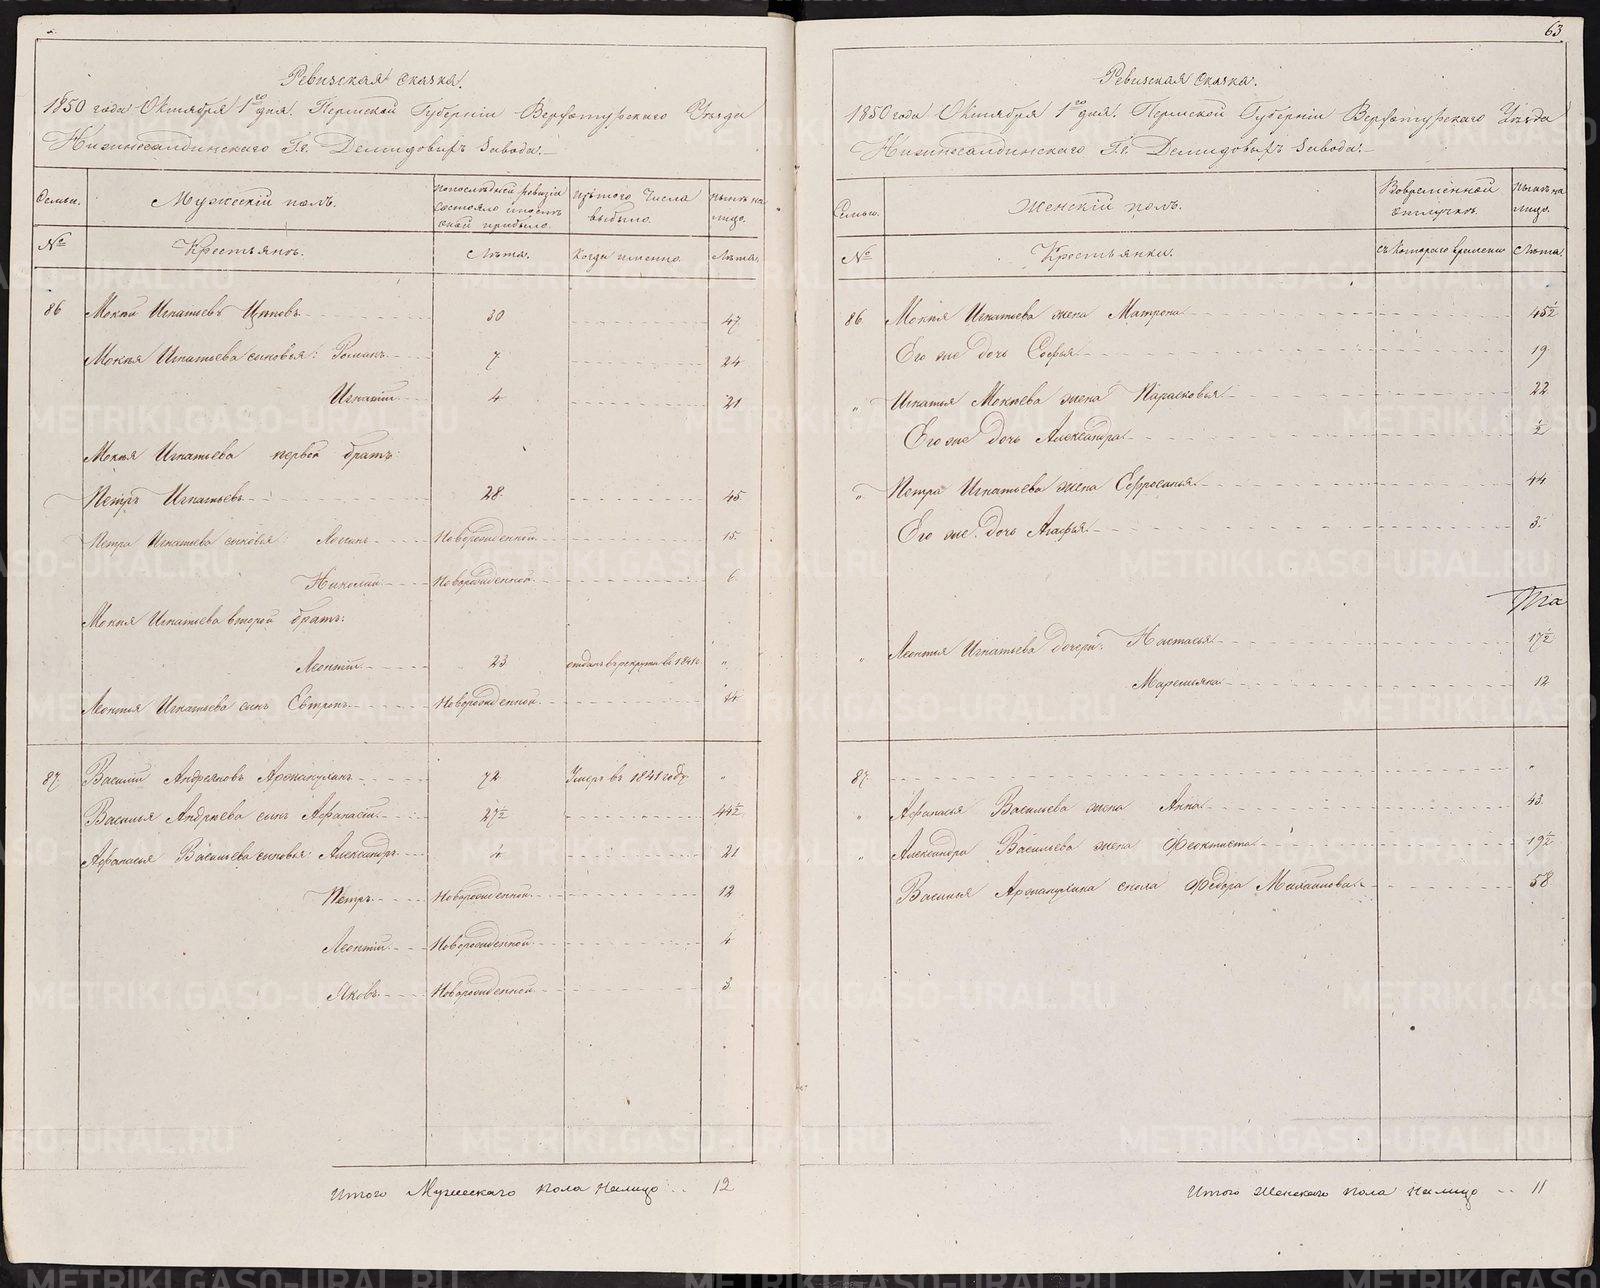 Ревизская сказка.
1850 года Октября 1го дня. Пермской Губерніи Верхотурскаго Уѣзда
Нижнесалдинскаго Гг. Демидовыхъ завода.
Семьи.
Мужескій полъ.
по последней ревизіи состояло и после оной прибыло.
изъ того Числа выбыло.
ныне на лицо.
№
Крестьянъ.
Лѣта.
Когда именно.
Лѣта.
86 Мокій Игнатьевъ 30 47
Мокія Игнатьева сыновья: Романъ 7 24
Игнатій 4 21
Мокія Игнатьева первой братъ
Петръ Игнатьевъ 28 45
Петра Игнатьева сыновья: Новорожденной 15
Николай Новорожденной 6
Мокія Игнатьева второй братъ:
Леонтій 23 отданъ въ рекруты въ 1841г "
Леонтья Игнатьева сынъ Новорожденной 14
87 Василій Андреяновъ 72 Умеръ въ 1841 году "
Василья Андреева сынъ Афанасій 27½ 44½
Афанасья Васильева сыновья: Александръ 4 21
Петръ Новорожденной 12
Леонтій Новорожденной 4
Яковъ Новорожденной 3
Итого Мужескаго пола налицо 12
63
Ревизская сказка.
1850 года Октября 1го дня. Пермской Губерніи Верхотурскаго Уѣзда
Нижнесалдинскаго Гг. Демидовыхъ завода.
Семьи.
Женскій полъ.
Во временной отлучке.
Ныне на лицо.
№
Крестьянки.
съ котораго времени
Лѣта
86 Мокія Игнатьева жена Матрона 45½
Его же дочь Софья 19
" Игнатья Мокіева жена Парасковья 22
Его же дочь Александра ½
" Петра Игнатьева жена Ефросинья 44
Его же дочь Агафья 3
" Леонтья Игнатьева дочери: Настасья 17½
Маремьяна 12
87 "
" Афанасья Васильева жена Анна 43
" Александра Васильева жена Феоктиста 19½
Василья сноха Федора Михайлова 58
Итого Женскаго пола налицо 11
METRIKI.GASO-URAL.RU